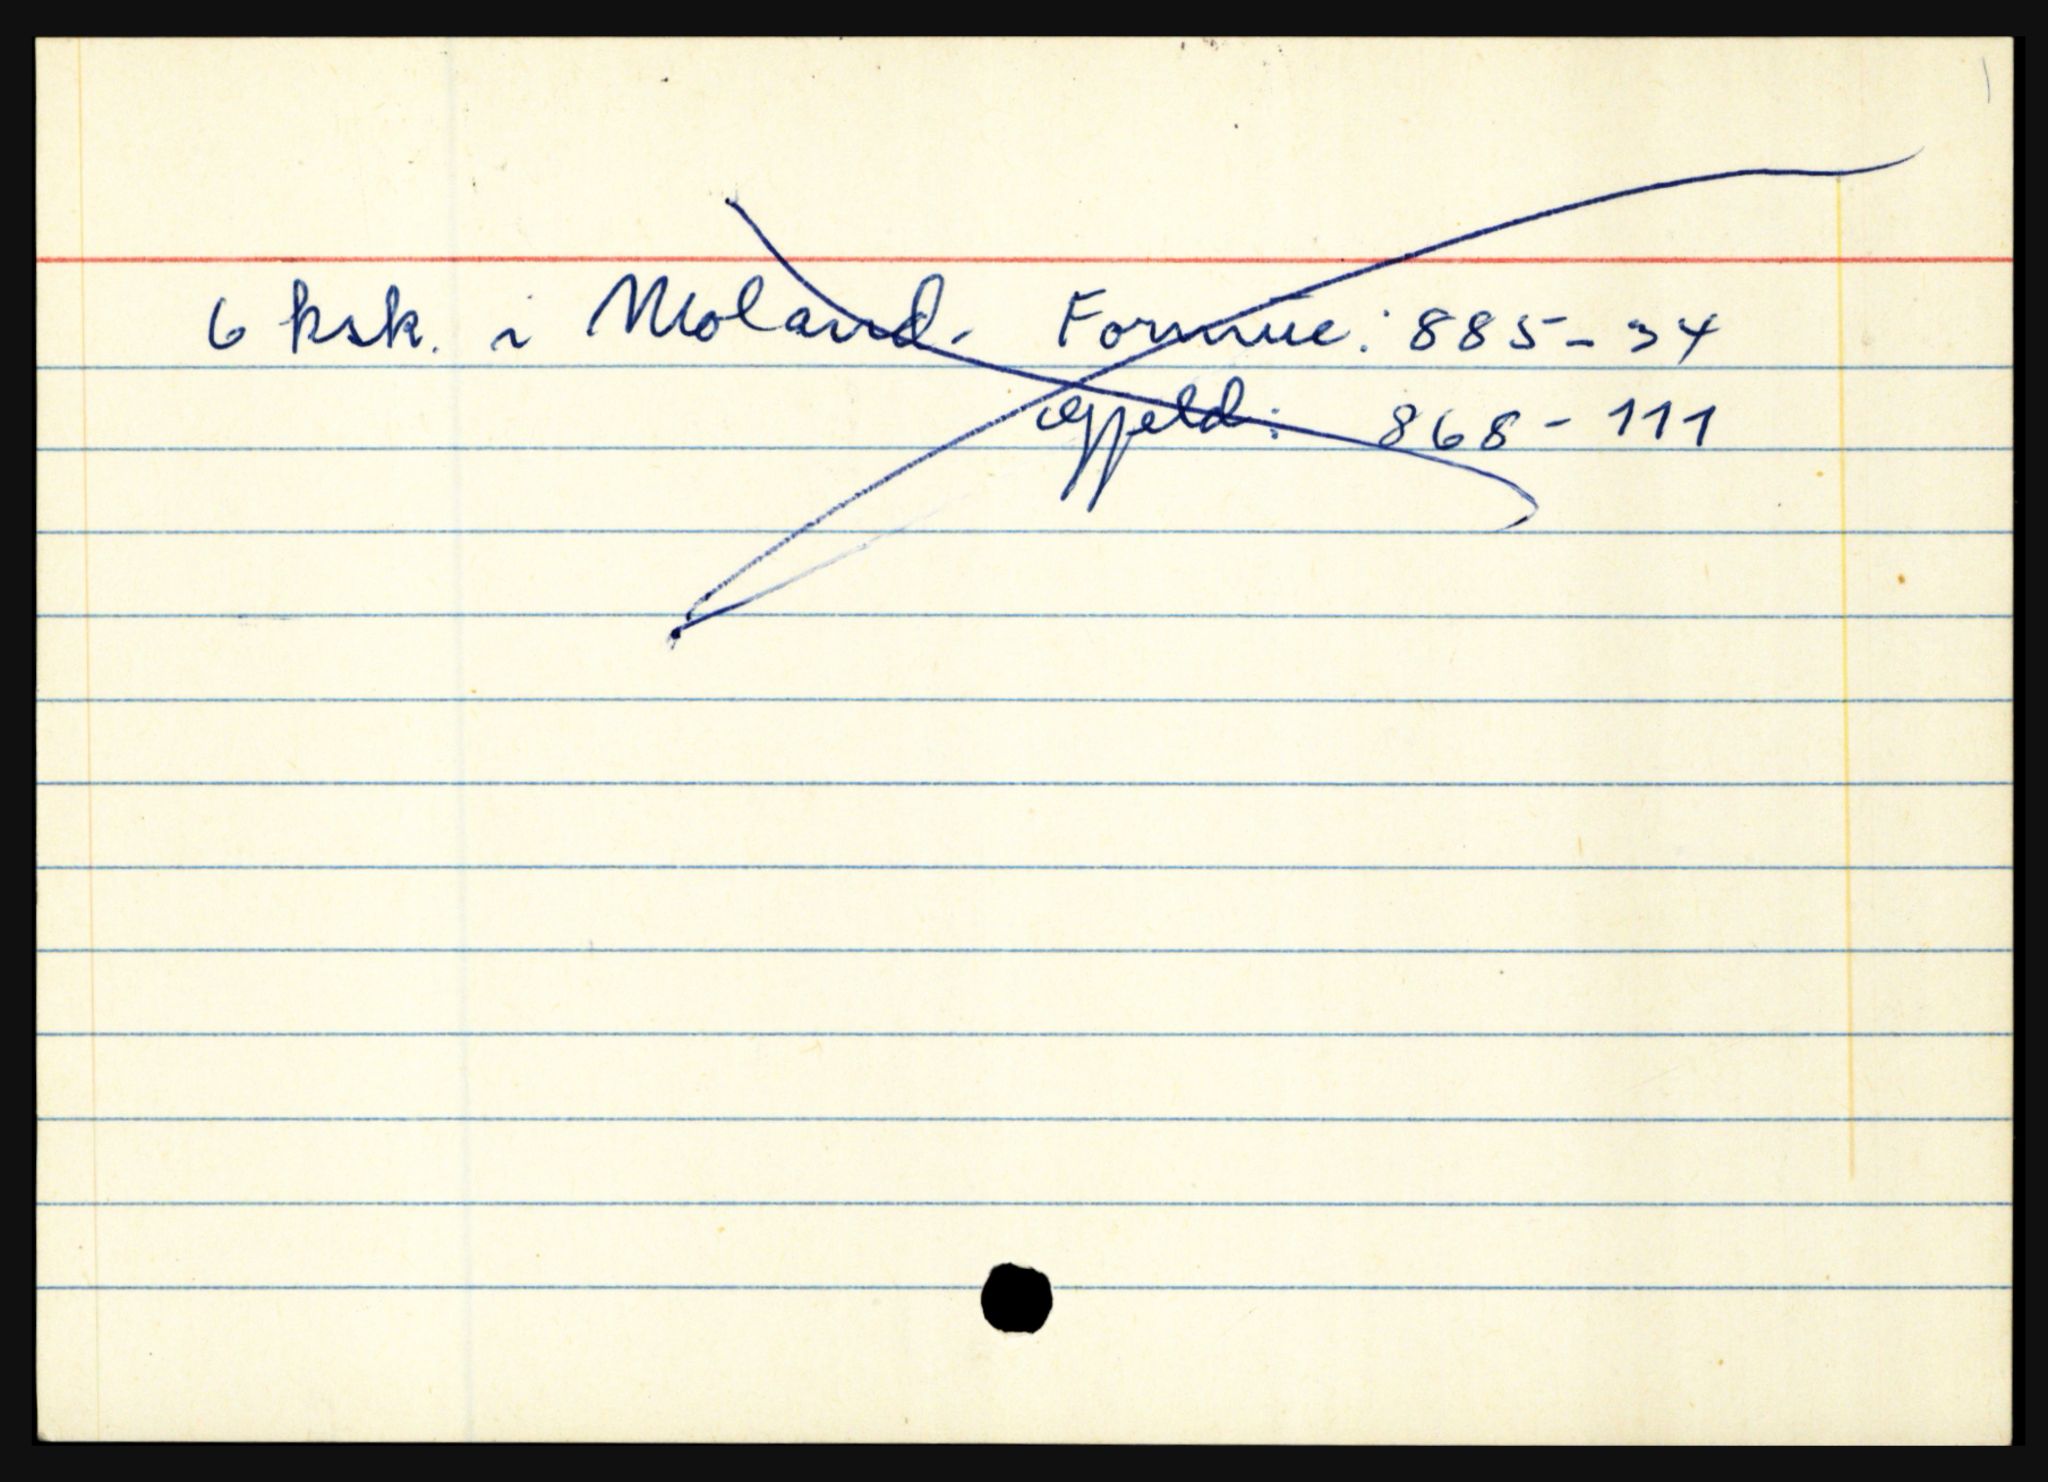 6 ksk. i Moland. Formue: 885-34
Gjeld: 868-111